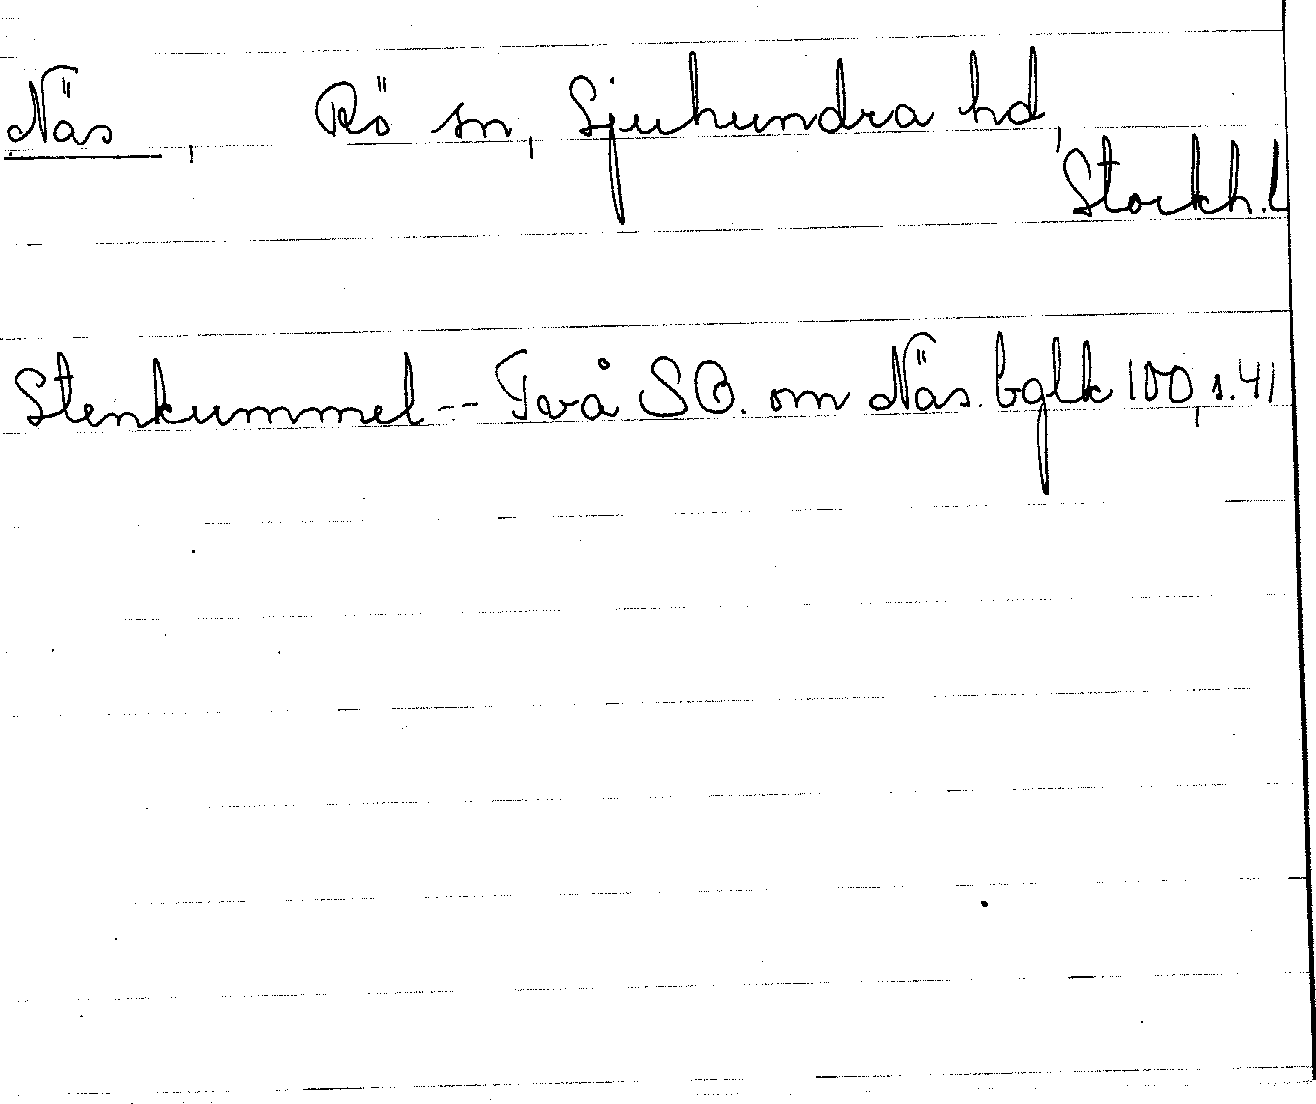 Näs, Rö sn, Sjuhundra hd,
Stockh. L
Stenkummel -- Två SO. om Näs. bglk 100, s. 41